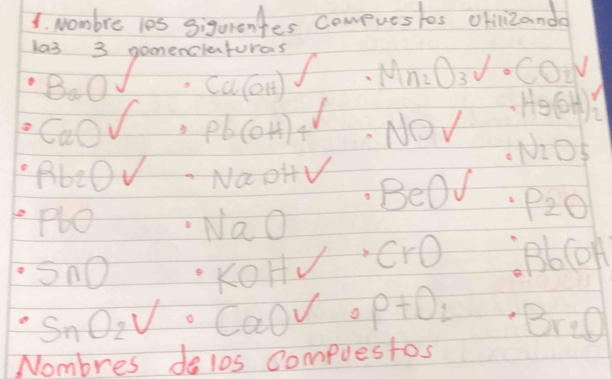 1. Nombre los siguientes compuestos utilizando
las 3 nomenclaturas
• BaO ✓ • Ca(OH) ✓ • Mn2O3 ✓ • CO2 ✓
• Hg(OH)2 ✓
• CaO ✓ • Pb(OH)4 ✓ • NO ✓
• N2O5
• Rb2O ✓ - NaOH ✓
• BeO ✓ • P2O
• PbO • NaO
• SnO • KOH ✓ • CrO • Rb(OH
• SnO2 ✓ • CaO ✓ • PtO2 • Br2O
Nombres de los compuestos